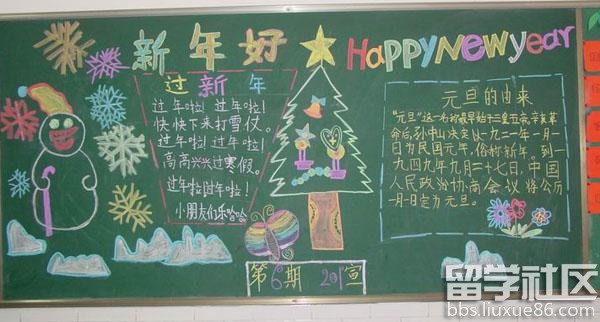 新年好
Happy New year
过新年
过年啦！过年啦！
快快下来打雪仗。
过年啦！过年啦！
高高兴兴过寒假。
过年啦！过年啦！
小朋友们乐哈哈。
元旦的由来
“元旦”这一名称最早始于三皇五帝，辛亥革
命后，孙中山决定以一九一二年一月一日
为民国元年，俗称新年。到一
九四九年九月二十七日，中国
人民政治协商会议将公历
一月一日定为元旦。
第6期 201宣
留学社区
bbs.liuxue86.com